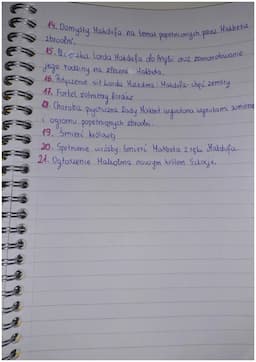 14. Domysły Makdufa na temat popełnionych przez Makbeta
zbrodni.
15. Ucieczka lorda Makdufa do Anglii oraz zamordowanie
jego rodziny na zlecenie Makbeta.
16. Połączenie sił lorda Malkolma i Makdufa - chęć zemsty
17. Fortel żołnierzy lordów
18. Choroba psychiczna Lady Makbet wywołana wyrzutami sumienia
i ogromu popełnionych zbrodni.
19. Śmierć królowej
20. Spełnienie wróżby. Śmierć Makbeta z ręki Makdufa.
21. Ogłoszenie Malkolma nowym królem Szkocji.